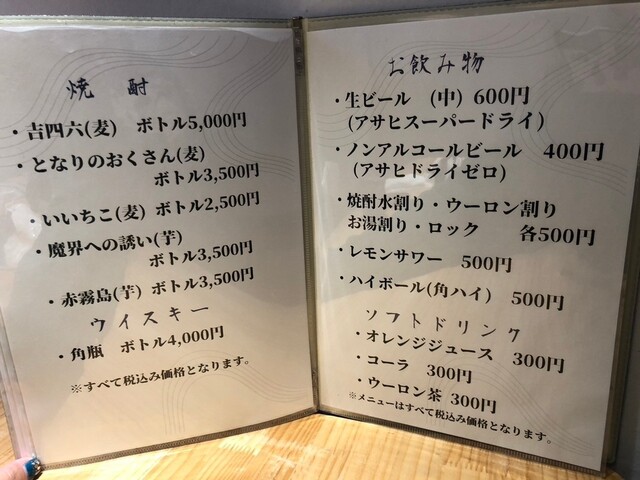 焼 酎
・吉四六(麦) ボトル5,000円
・となりのおくさん(麦)
ボトル3,500円
・いいちこ(麦) ボトル2,500円
・魔界への誘い(芋)
ボトル3,500円
・赤霧島(芋) ボトル3,500円
ウイスキー
・角瓶 ボトル4,000円
※すべて税込み価格となります。
お飲み物
・生ビール (中) 600円
(アサヒスーパードライ)
・ノンアルコールビール 400円
(アサヒドライゼロ)
・焼酎水割り・ウーロン割り
お湯割り・ロック 各500円
・レモンサワー 500円
・ハイボール(角ハイ) 500円
ソフトドリンク
・オレンジジュース 300円
・コーラ 300円
・ウーロン茶 300円
※メニューはすべて税込み価格となります。